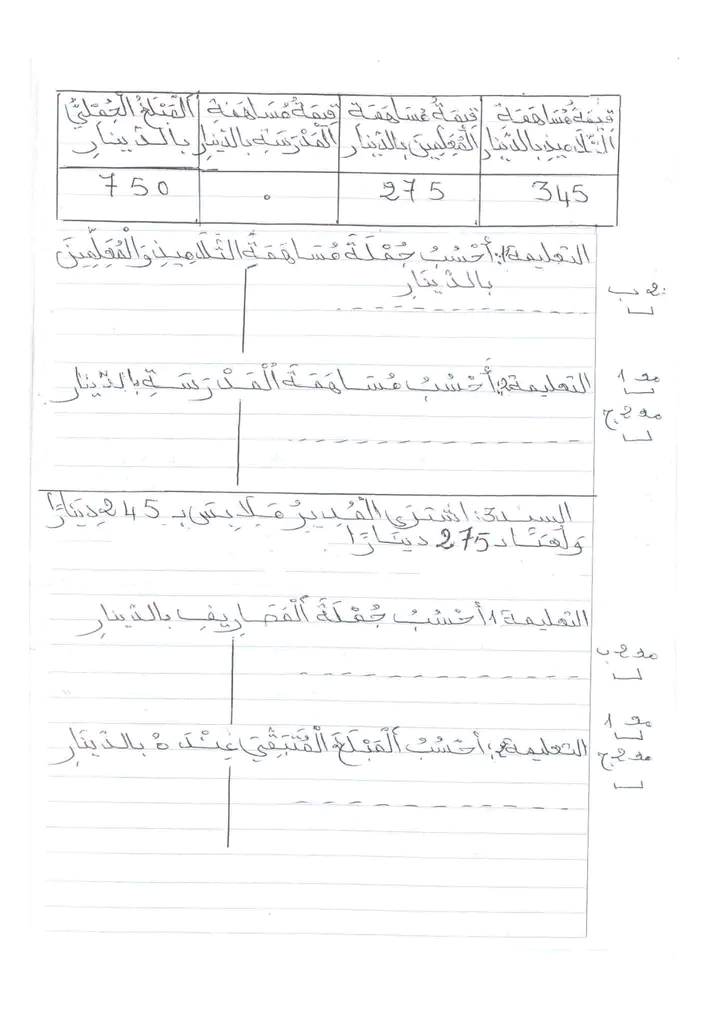 قِيمَةُ مُسَاهَمَةِ التَّلَامِيذِ بِالدِّينَارِ
قِيمَةُ مُسَاهَمَةِ الْمُعَلِّمِينَ بِالدِّينَارِ
قِيمَةُ مُسَاهَمَةِ الْمَدْرَسَةِ بِالدِّينَارِ
اَلْمَبْلَغُ الْجُمْلِيُّ بِالدِّينَارِ
345
275
.
750
التعليمة 1: أَحْسُبُ جُمْلَةَ مُسَاهَمَةِ التَّلَامِيذِ وَالْمُعَلِّمِينَ
بِالدِّينَارِ
2 ب
التعليمة 2: أَحْسُبُ مُسَاهَمَةَ اُلْمَدْرَسَةِ بِالدِّينَارِ
مع 1
مع 2 ج
السند 3: اشْتَرَى الْمُدِيرُ مَلَابِسَ بِـ 245 دِينَارًا
وَلُعَبًا بـ 275 دِينَارًا
التعليمة 1: أَحْسُبُ جُمْلَةَ اَلْمَصَارِيفِ بِالدِّينَارِ
مع 2 ب
التعليمة 2: أَحْسُبُ اَلْمَبْلَغَ الْمُتَبَقِّيَ عِنْدَهُ بِالدِّينَارِ
مع 1
مع 2 ج